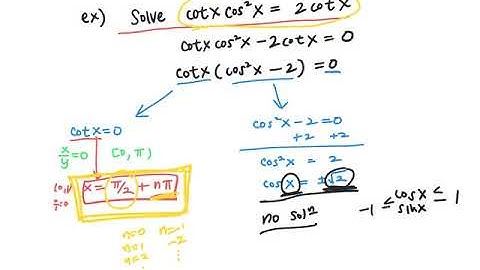 ex) Solve cotx cos²x = 2 cotx
cotx cos²x - 2cotx = 0
cotx (cos²x - 2) = 0
cotx = 0
x/y = 0 [0, π)
x = π/2 + nπ
n=0 n=-1
n=1 -2
n=2 ⋮
⋮
cos²x - 2 = 0
+2 +2
cos²x = 2
cosx = ±√2
no solⁿ
-1 ≤ cosx ≤ 1
sinx